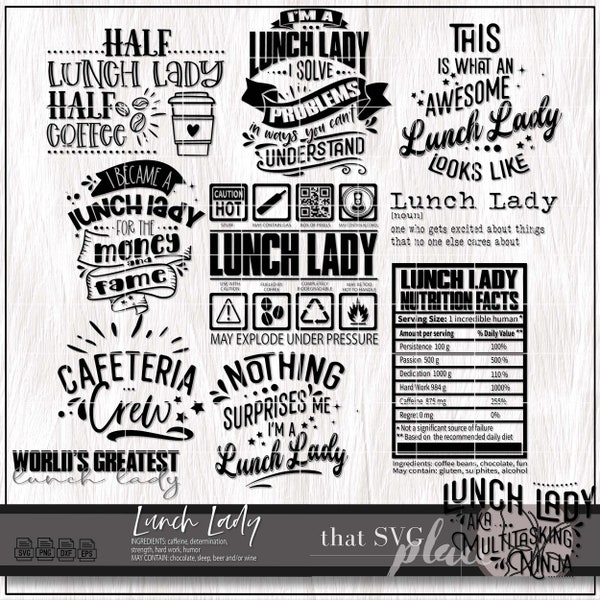 HALF
LUNCH LADY
HALF
COFFEE
I'M A
LUNCH LADY
I SOLVE
PROBLEMS
in ways you can't
UNDERSTAND
THIS
IS WHAT AN
AWESOME
Lunch Lady
LOOKS LIKE
I BECAME A
lunch lady
FOR THE
money
and
fame
CAUTION
HOT
MAY CONTAIN GAS
LUNCH LADY
USE WITH
CAUTION
FUELED BY
COFFEE
COMPLETELY
BIODEGRADABLE
MAY BE TOO
HOT TO HANDLE
MAY EXPLODE UNDER PRESSURE
Lunch Lady
[noun]
one who gets excited about things
that no one else cares about
LUNCH LADY
NUTRITION FACTS
Serving Size: 1 incredible human *
Amount per serving % Daily Value **
Persistence 100 g 100%
Passion 500 g 500 %
Dedication 1000 g 110 %
Hard Work 984 g 1000%
Caffeine 875 mg 255%
Regret 0 mg 0%
* Not a significant source of failure
** Based on the recommended daily diet
Ingredients: coffee beans, chocolate, fun
May contain: gluten, sulphites, alcohol
CAFETERIA
Crew
NOTHING
SURPRISES ME
I'M A
Lunch Lady
WORLD'S GREATEST
lunch lady
LUNCH LADY
AKA
MULTITASKING
NINJA
SVG PNG DXF EPS
Lunch Lady
INGREDIENTS: caffeine, determination,
strength, hard work, humor
MAY CONTAIN: chocolate, sleep, beer and/or wine
that SVG
place